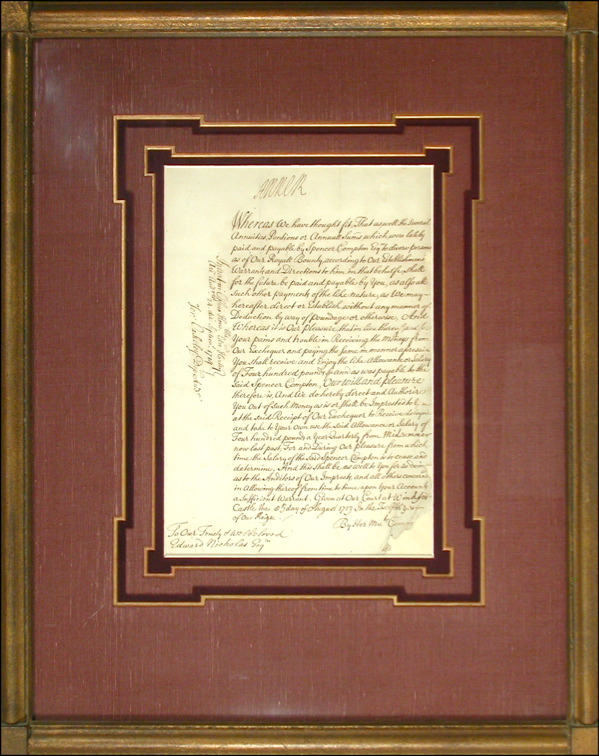 Anne R
Whereas We have thought fit, That as well the several
Annuities, Pensions or Annuall Sums which were lately
paid and payable by Spencer Compton Esqr to divers persons
as of Our Royall Bounty, according to Our Establishment
Warrants and Directions to him in that behalfe, Shall
for the future be paid and payable by You, as also all
Such other payments of the like nature, as We may
hereafter direct or Establish without any manner of
Deduction by way of poundage or otherwise, And
Whereas it is Our Pleasure that in lieu thereof and for
Your pains and trouble in Receiving the Moneys from
Our Exchequer and paying the same in manner aforesaid
You Shall receive and Enjoy the like Allowance or Salary
of Four hundred pounds p ann as was payable to the
Said Spencer Compton, Our will and pleasure
therefore is, And We do hereby direct and Authorize
You out of Such Money as is or Shall be Imprested to
at the Said Receipt of Our Exchequer to Receive
and take to Your own use the Said Allowance or Salary of
Four hundred pounds a Year Quarterly from Midsummer
now last past, For and During Our pleasure from which
time the Salary of the Said Spencer Compton is to cease and
determine, And this Shall be as well to You for
as to the Auditors of Our Imprests, and all others concerned
in Allowing thereof from time to time upon Your Accounts
a Sufficient Warrant. Given at Our Court at Windsor
Castle the day of August 1713 In the Twelfth Year
of Our Reign
By Her Mats Comand
To Our Trusty & Wellbeloved
Edward Nicholas Esqr